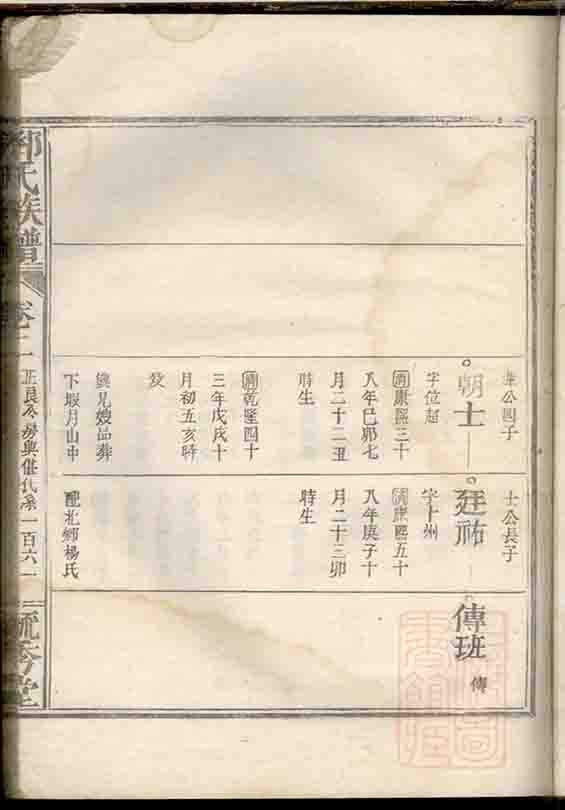 華公四子
朝士
字位超
清康熙三十
八年己卯七
月二十二丑
時生
清乾隆四十
三年戊戌十
月初五亥時
歿
與兄嫂品葬
下堰月山中
士公長子
廷祐
字上州
清康熙五十
八年庚子十
月二十三卯
時生
配北鄉楊氏
傳班
傳
氏族譜
卷二
一百六一